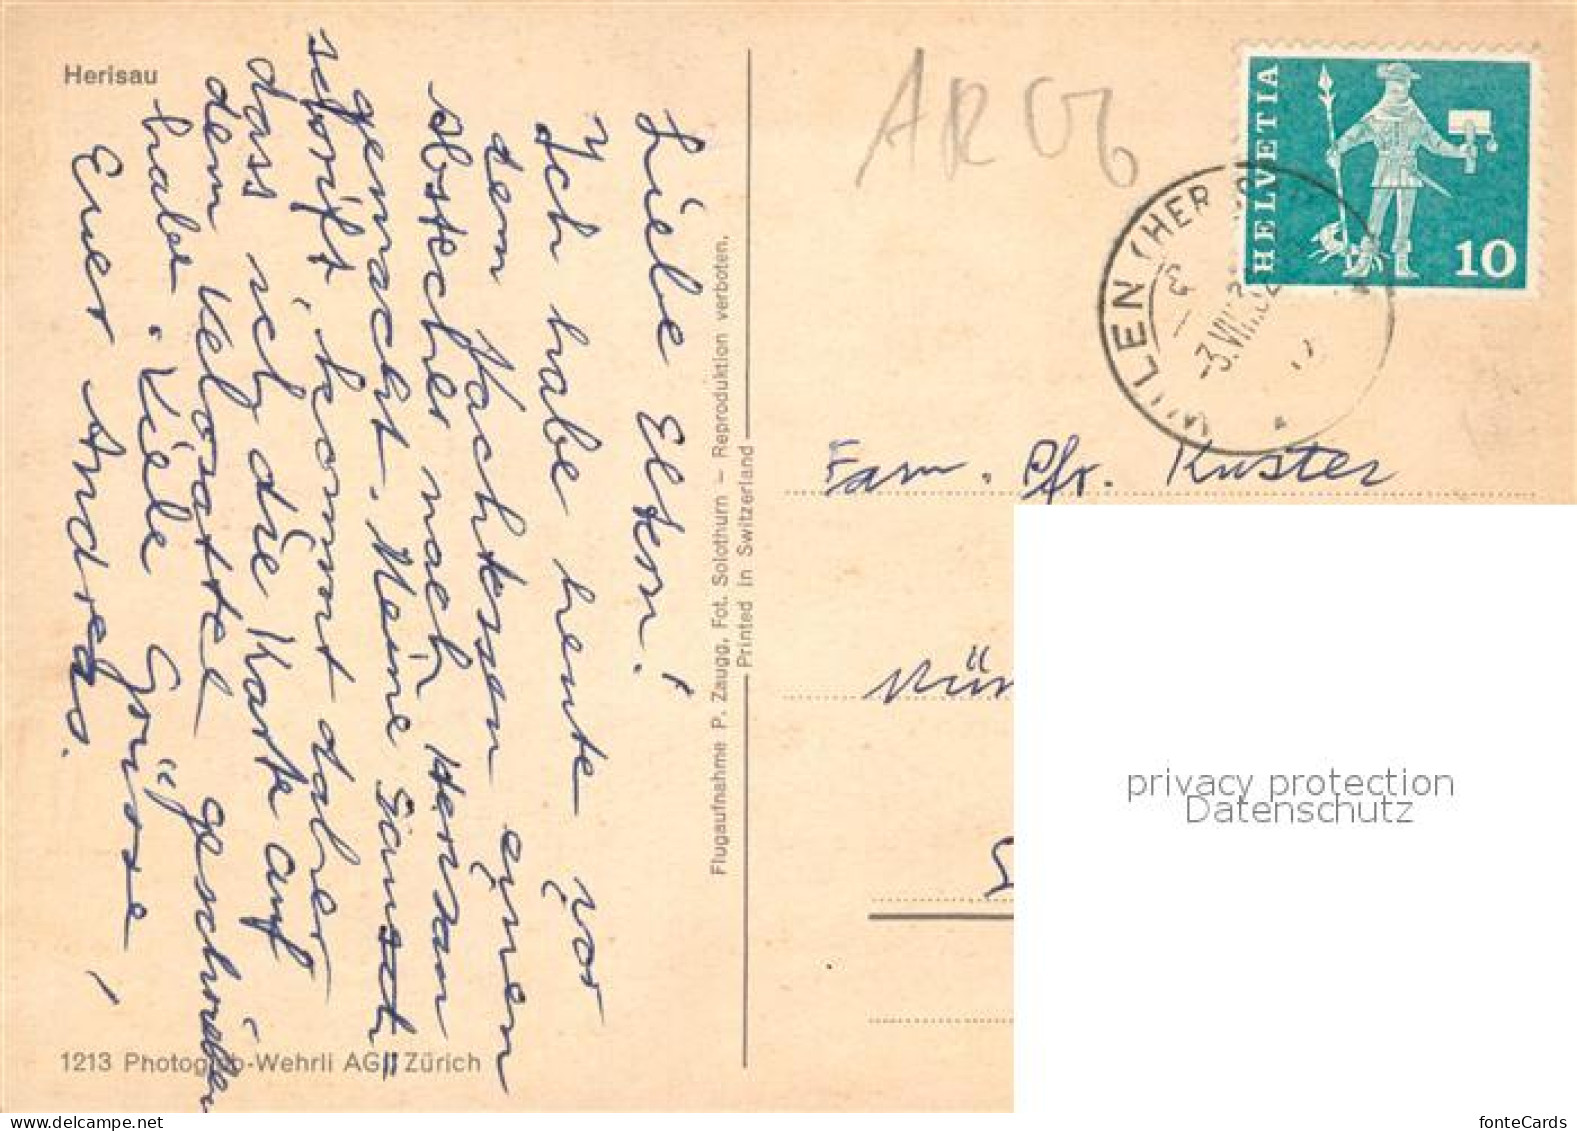 Herisau
Liebe Eltern!
Ich habe heute vor
dem Nachtessen einen
Abstecher nach Herisau
gemacht. Meine
schrift kommt daher
dass ich die Karte auf
dem Velosattel geschrieben
habe. Viele Grüsse,
Euer Andreas.
1213 Photoglob-Wehrli AG, Zürich
Flugaufnahme P. Zaugg, Fot. Solothurn – Reproduktion verboten.
Printed in Switzerland
HELVETIA
10
WILEN (HER
-3.VIII.
Fam. Pfr. Kuster
privacy protection
Datenschutz
fonteCards